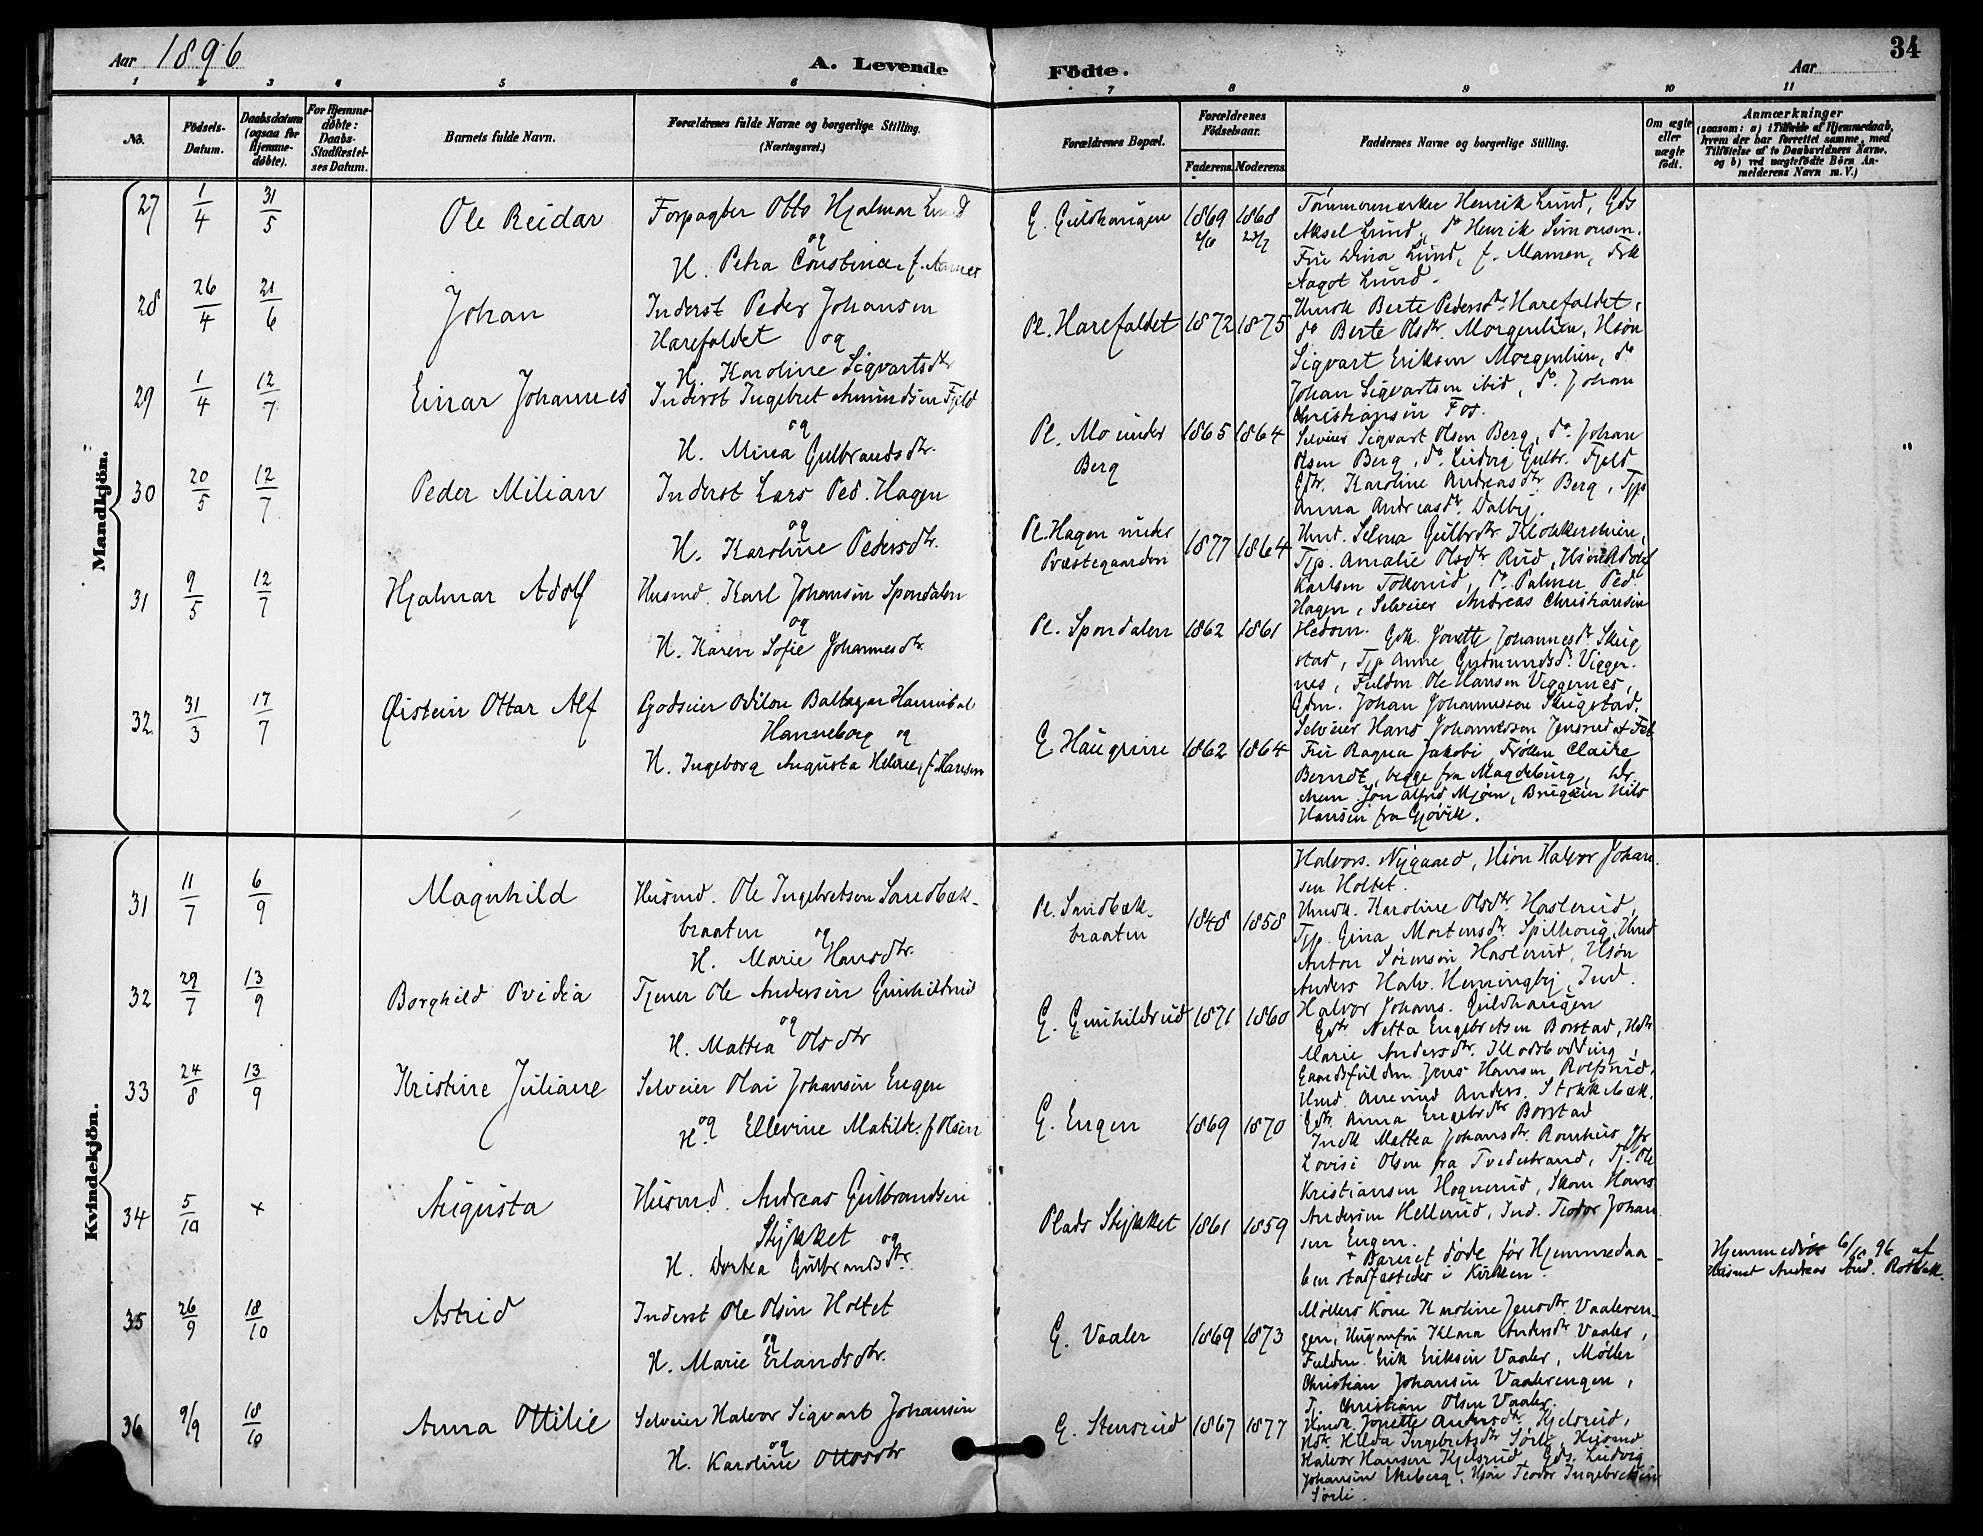 Aar 1896
A. Levende Födte.
Aar
34
1 2 3 4 5 6 7 8 9 10 11
No.
Födsels-Datum.
Daabsdatum (ogsaa for Hjemme-döbte).
For Hjemme-döbte: Daabs-Stadfæstelses Datum.
Barnets fulde Navn.
Forældrenes fulde Navne og borgerlige Stilling.
(Næringsvei.)
Forældrenes Bopæl.
Forældrenes Födselsaar.
Faderens. Moderens.
Faddernes Navne og borgerlige Stilling.
Om ægte eller uægte födt.
Anmærkninger
(saasom: a) i Tilfælde af Hjemmedaab, hvem der har forrettet samme, med Tilföielse af to Daabsvidners Navne, og b) ved uægtefödte Börn Anmelderens Navn m. V.)
Mandkjön.
27 1/4 31/5 Ole Reidar
Forpagter Otto Hjalmar Lund
og
H. Petra Constance f. Aannes
G. Guldhaugen 1869 1868
Tømmermærker Henrik Lund, Gds
Aksel Lund, do Henrik Simonsen.
Fru Dina Lund, f. Mamen, Frk
Aagot Lund.
28 26/4 21/6 Johan
Inderst Peder Johansen
Harefaldet og
H. Karoline Sigvartsdtr
Pl. Harefaldet 1872 1875
Hmdk Berte Pedersdtr Harefaldet,
do Berte Olsdtr. Morgenlien, Hsøn
Sigvart Eriksen Morgenlien, do
Johan Sigvartsen ibid, do. Johan
Christiansen Fos.
29 1/4 12/7 Einar Johannes
Inderst Ingebret Amundsen Fjeld
og
H. Mina Gulbrandsdtr.
Pl. Mo under
Berg
1865 1864
Selveier Sigvart Olsen Berg, do Johan
Olsen Berg, do. Ludvig Gulbr. Fjeld
Gdtr. Karoline Andreasdtr Berg, Tjp.
Anna Andreasdtr. Dalby.
30 20/5 12/7 Peder Milian
Inderst Lars Ped. Hagen
og
H. Karoline Pedersdtr.
Pl. Hagen under
Præstegaarden
1877 1864
Hmd. Selma Gulbrdtr Klokkerenien,
Tjp. Amalie Olsdtr Rud, Hsøn Adolf
Karlsen Tokerud, do. Palmer Ped.
Hagen, Selveier Andreas Christiansen
Hedom.
31 9/5 12/7 Hjalmar Adolf
Husmd. Karl Johansen Spondalen
og
H. Karen Sofie Johannesdtr.
Pl. Spondalen 1862 1861
Gdk. Jonette Johannesdtr Skug
stad, Tjp Anne Gudmundsdtr Vigger-
nes, Fuldm. Ole Hansen Viggernes,
Gdm. Johan Johannesson Skugstad.
Selveier Hans Johannesson Jensrud
32 31/3 17/7 Øistein Ottar Alf
Godseier Odilon Baltazar Hannibal
Hanneborg og
H. Ingeborg Augusta Helene, f. Hansen
G Haugrim 1862 1864
Fru Ragna Jakobi, Frøken Claire
Berndt, begge fra Magdeburg, Dr.
chem. Jon Alfred Mjøen, Brugseier Nils
Hansen fra Gjøvik.
Kvindekjön.
Halvors. Nygaard, Hsøn Halvor Johan-
sen Holtet.
31 11/7 6/9 Magnhild
Husmd. Ole Ingebretsen Sandbæk-
braaten og
H. Marie Hansdtr.
Pl. Sandbæk-
braaten
1848 1858
Hmdk. Karoline Olsdtr Haslerud,
Tjp. Gina Mortensdtr. Spilhaug, Hmd
Anton Sørensen Haslerud, Hsøn
Anders Halv. Hemingby, Ind.
Halvor Johans. Guldhaugen
32 29/7 13/9 Borghild Ovidia
Tjener Ole Andersen Gunhildrud
og
H. Mattea Olsdtr
G. Gunhildrud 1871 1860
Gdtr Netta Engebretsen Borstad, Hdtr
Marie Andersdtr. Klodsbødding,
Gaardsfuldm. Jens Hansen Rolfsrud,
Hmd. Anevind Anders. Stokkebæk,
Gdtr. Anna Engebrdtr Borstad
33 24/8 13/9 Kristine Juliane
Selveier Olai Johansen Engen
og
H. Ellevine Matilde f Olsen
G. Engen 1869 1870
Indk Mattea Johansdtr. Romhus, Jfr
Lovise Olsen fra Tvedestrand, Tj. Ole
Kristiansen Hognerud, Skom Hans
Andersen Hellerud, Ind. Teodor Johan-
sen Engen.
34 5/10 + Augusta
Husmd. Andreas Gulbrandsen
Stykket og
H. Dortea Gulbrandsdtr.
Plads Stykket 1861 1859
+ Barnet døde før Hjemmedaa-
ben stadfæstedes i Kirken.
Hjemmedøbt 6/10 96 af
Husmd Andreas And. Rotbæk.
35 26/9 18/10 Astrid
Inderst Ole Olsen Holtet
og
H. Marie Erlandsdtr.
G. Vaaler 1869 1873
Møllers Kone Karoline Jensdtr. Vaaleren-
gen, Ungomfru Klara Andersdtr Vaaler,
Fuldm. Erik Eriksen Vaaler, Møller
Christian Johansen Vaalerengen,
Tj. Christian Olsen Vaaler.
36 9/9 18/10 Anna Ottilie
Selveier Halvor Sigvart Johansen
og
H. Karoline Ottosdtr
G. Stensrud 1867 1877
Hmdk. Jonette Andersdtr. Kjelsrud,
Hdtr. Hilda Ingebretsdtr Sørli, Husmd
Halvor Hansen Kjelsrud, Gds. Ludvig
Johansen Ekeberg, Hsøn Teodor Ingebretsen
Sørli.